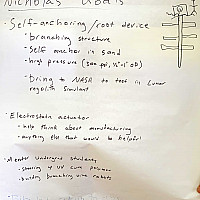 Nicholas Goals
- Self-anchoring/root device
- branching structure
- self anchor in sand
- high pressure (500 psi, ½"-1" OD)
- bring to NASA to test in Lunar
regolith simulant
- Electrostatic actuator
- help think about manufacturing
- anything else that would be helpful!
- Mentor undergrad students
- steering of UV cure polymer
- building branching vine robots